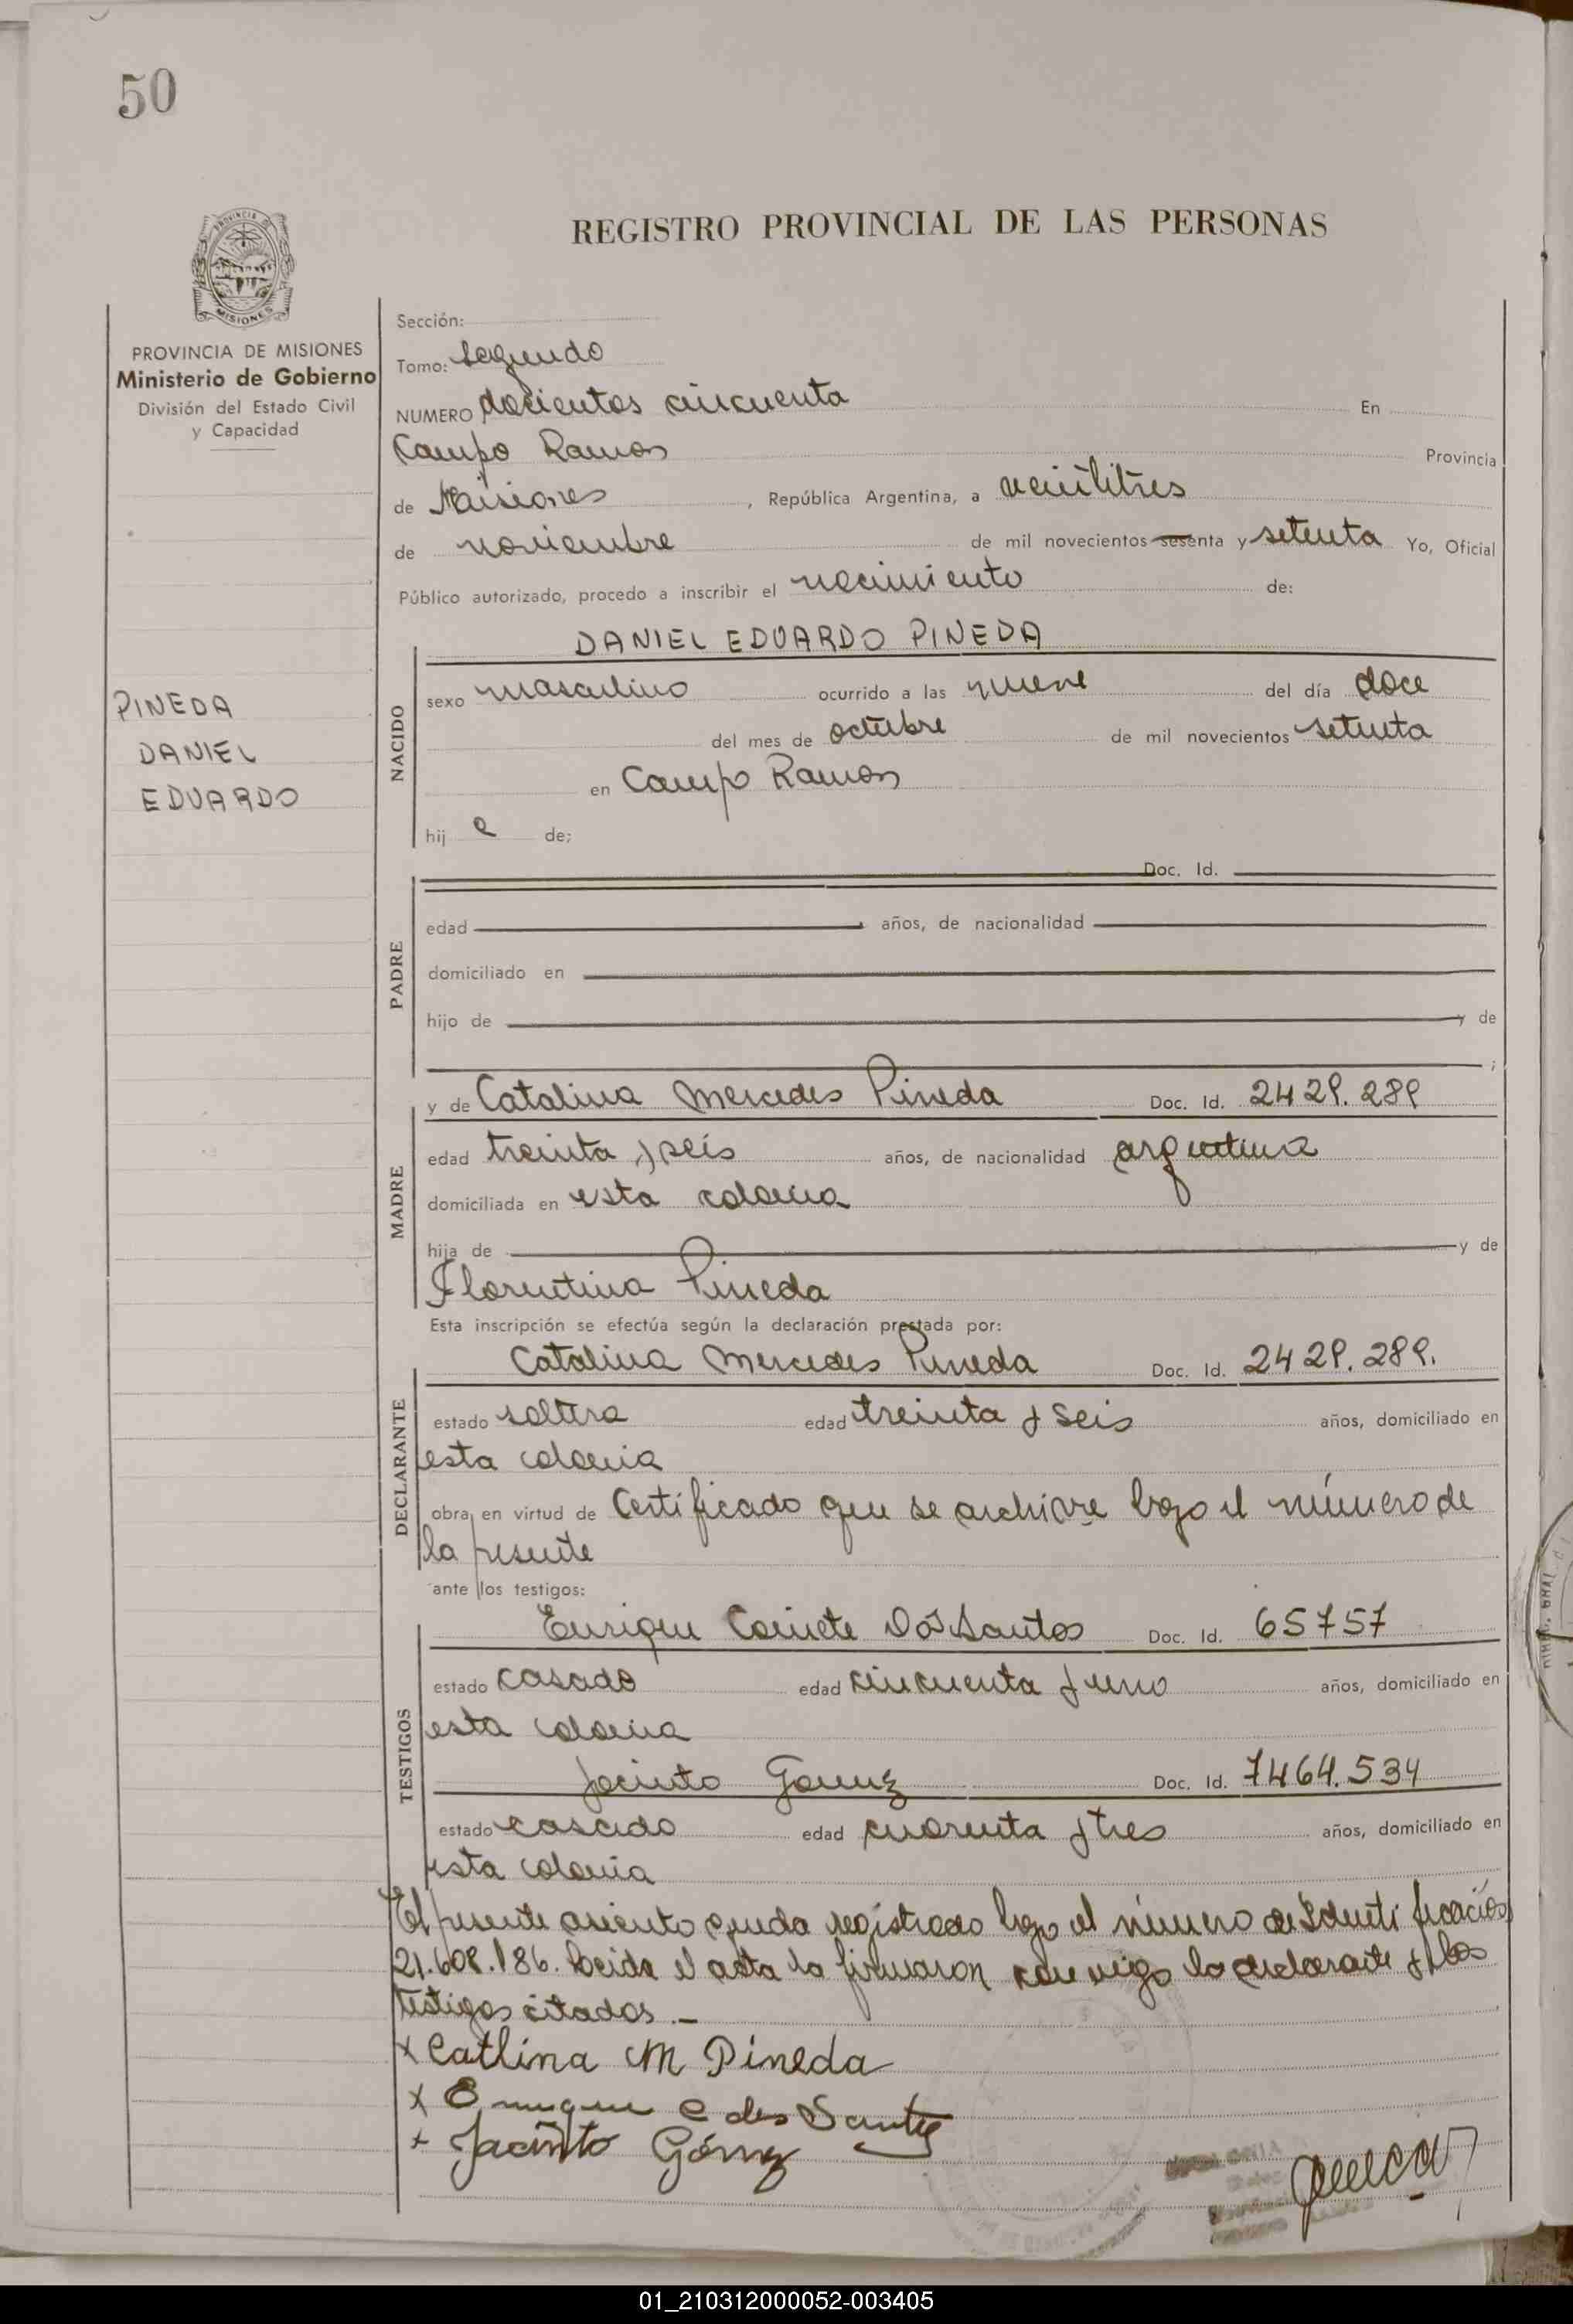 50
REGISTRO PROVINCIAL DE LAS PERSONAS
PROVINCIA DE MISIONES
Ministerio de Gobierno
División del Estado Civil
y Capacidad
Sección:
Tomo: Segundo
NUMERO docientos cincuenta En
Campo Ramon Provincia
de Misiones, República Argentina, a veintitres
de noviembre de mil novecientos sesenta y setenta Yo, Oficial
Público autorizado, procedo a inscribir el nacimiento de:
DANIEL EDUARDO PINEDA
PINEDA
DANIEL
EDUARDO
NACIDO
sexo masculino ocurrido a las nueve del día doce
del mes de octubre de mil novecientos setenta
en Campo Ramon
hij o de;
PADRE
Doc. Id.
edad años, de nacionalidad
domiciliado en
hijo de y de
;
MADRE
y de Catalina Mercedes Pineda Doc. Id. 2429.289
edad treinta y seis años, de nacionalidad argentina
domiciliada en esta colonia
hija de y de
Florentina Pineda
Esta inscripción se efectúa según la declaración prestada por:
DECLARANTE
Catalina Mercedes Pineda Doc. Id. 2429.289.
estado soltera edad treinta y seis años, domiciliado en
esta colonia
obra en virtud de Certificado que se archiva bajo el número de
la presente
ante los testigos:
TESTIGOS
Enrique Dos Santos Doc. Id. 65757
estado casado edad cincuenta y uno años, domiciliado en
esta colonia
Jacinto Gomez Doc. Id. 7464.534
estado casado edad cuarenta y tres años, domiciliado en
esta colonia
El presente asiento queda registrado bajo el número de Identificación
21.608.186. Leida el acta la firmaron conmigo la declarante y los
testigos citados.-
x Catlina M Pineda
x Enrique C dos Santos
x Jacinto Gómez
MISIONES
01_210312000052-003405